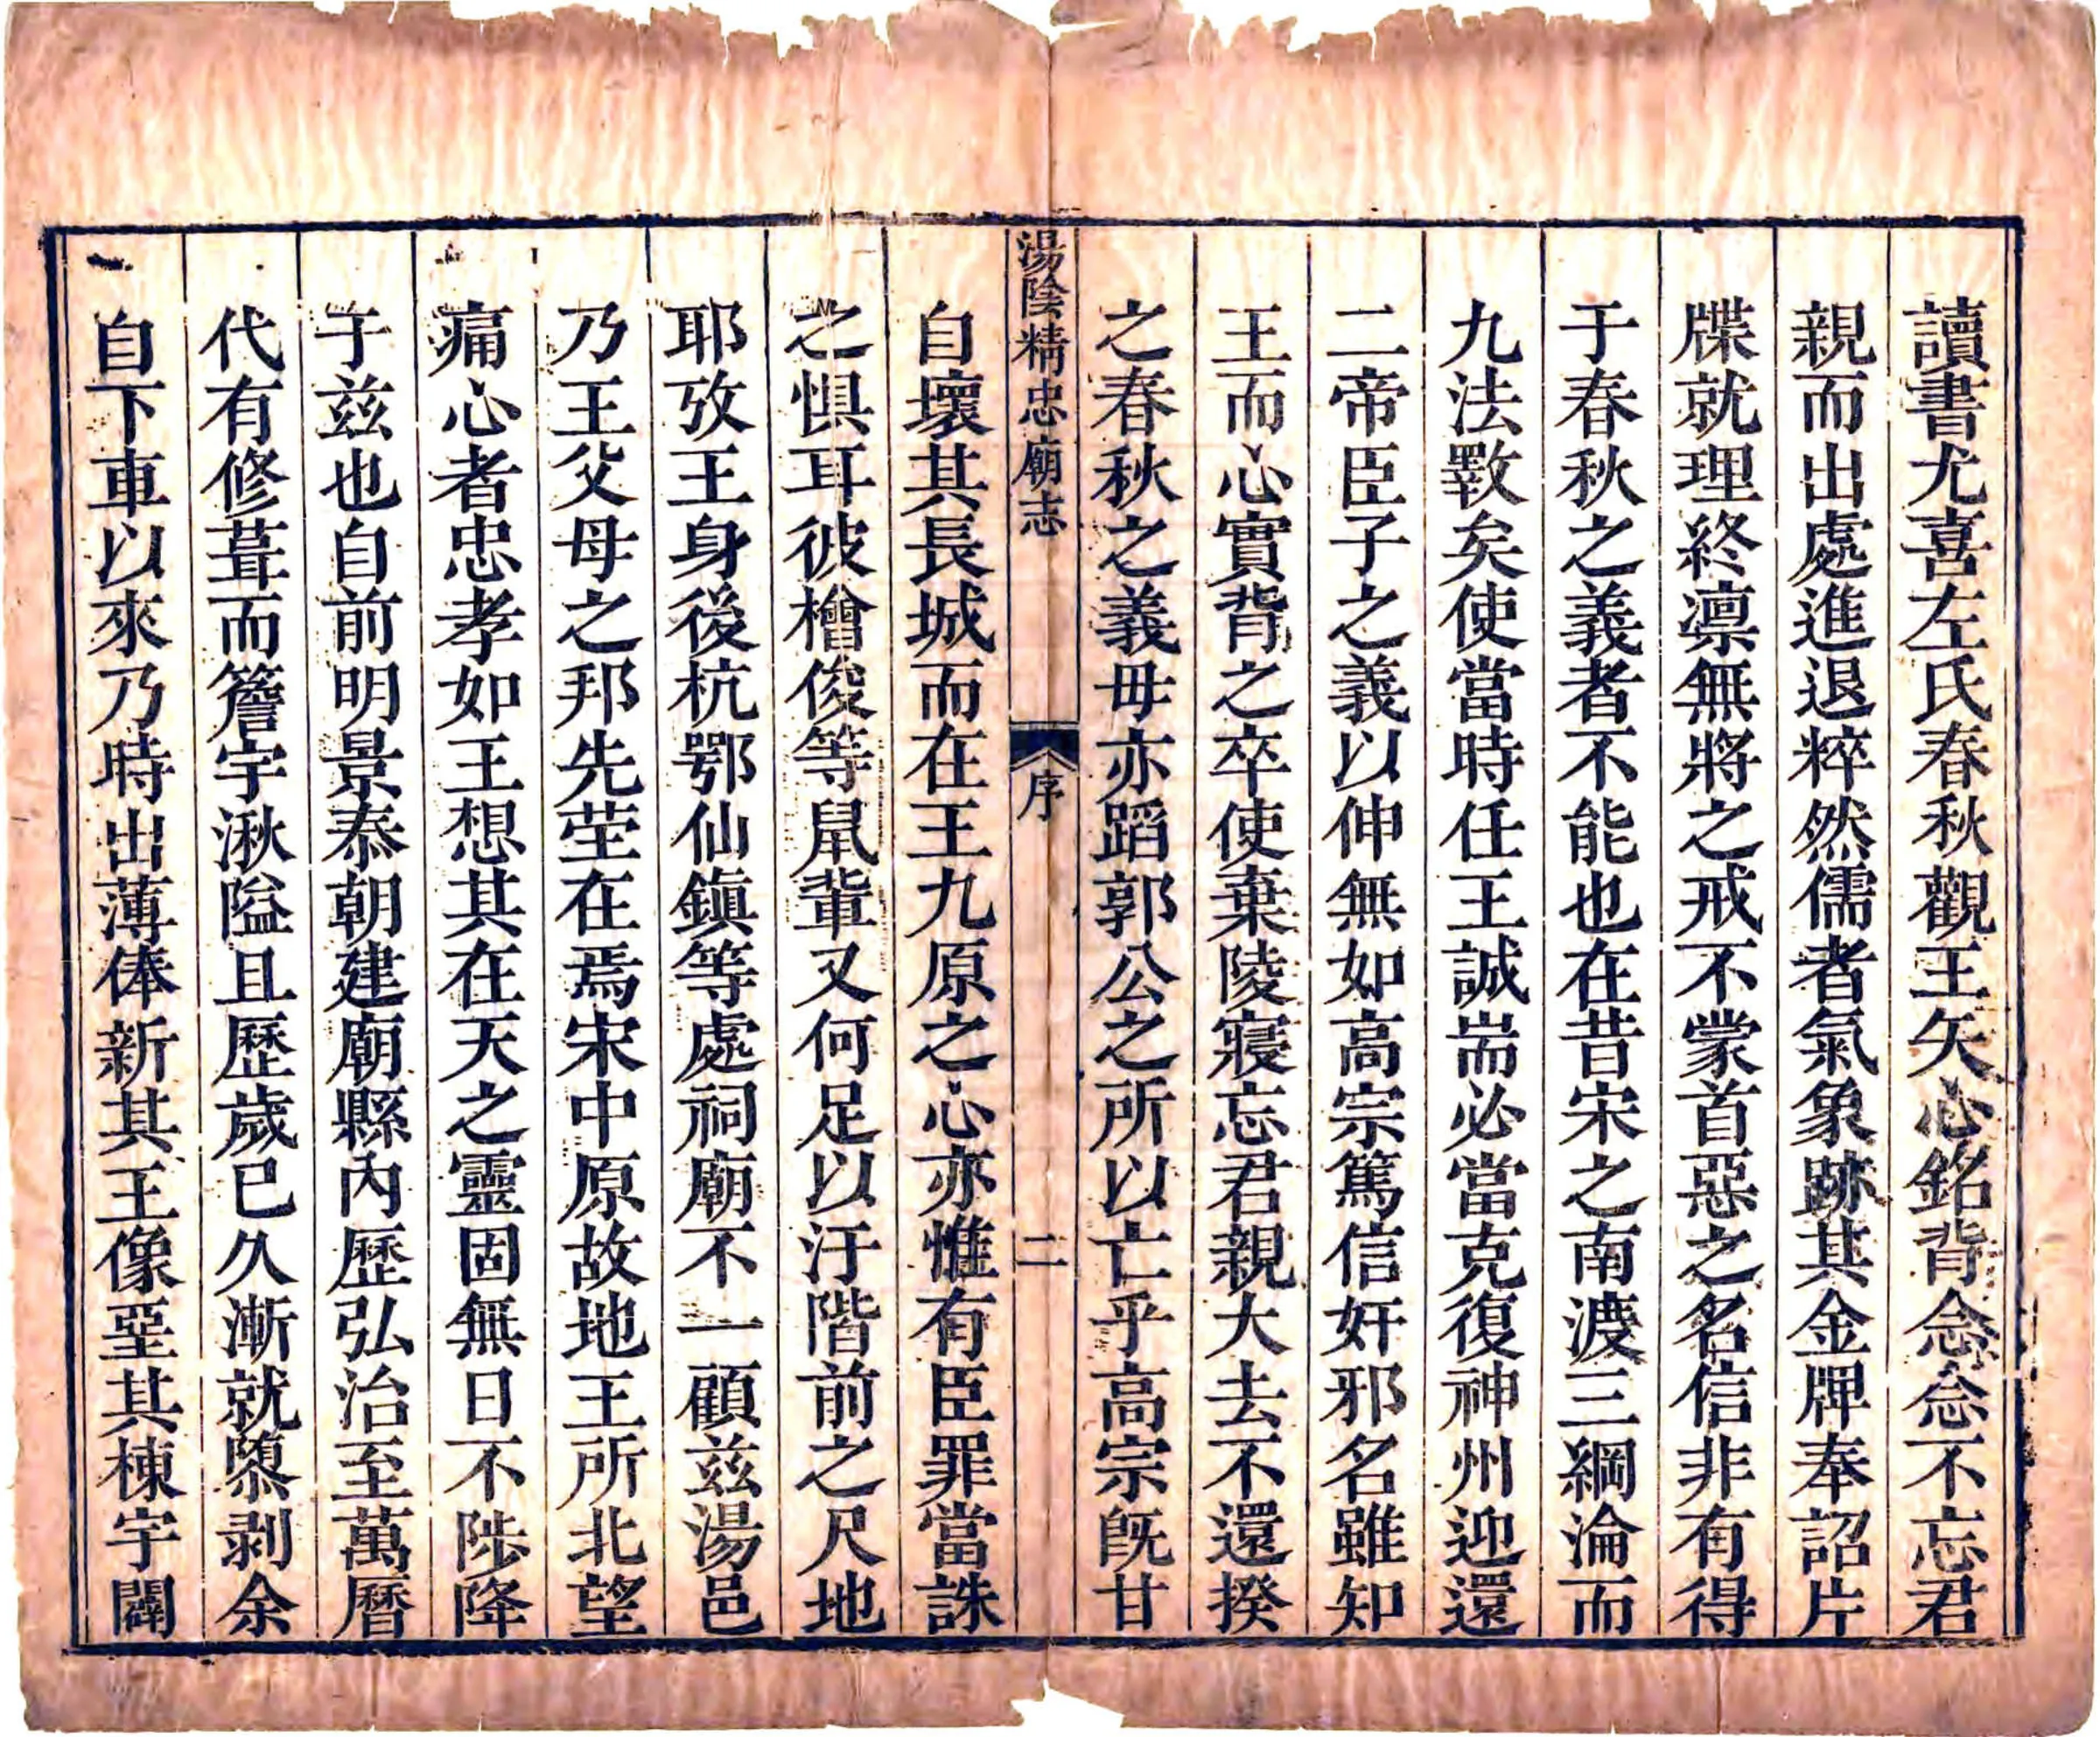 讀書尤喜左氏春秋觀王矢心銘背念念不忘君
親而出處進退粹然儒者氣象跡其金牌奉詔片
牒就理終凛無將之戒不蒙首惡之名信非有得
于春秋之義者不能也在昔宋之南渡三綱淪而
九法斁矣使當時任王誠耑必當克復神州迎還
二帝臣子之義以伸無如高宗篤信奸邪名雖知
王而心實背之卒使棄陵寢忘君親大去不還揆
之春秋之義毋亦蹈郭公之所以亡乎高宗旣甘
湯陰精忠廟志
序
二
自壞其長城而在王九原之心亦惟有臣罪當誅
之惧耳彼檜俊等鼠輩又何足以汙階前之尺地
耶攷王身後杭鄂仙鎮等處祠廟不一顧兹湯邑
乃王父母之邦先茔在焉宋中原故地王所北望
痛心者忠孝如王想其在天之靈固無日不陟降
于兹也自前明景泰朝建廟縣內歷弘治至萬曆
代有修葺而簷宇湫隘且歷歲已久漸就隳剥余
自下車以來乃時出薄俸新其王像堊其棟宇闢